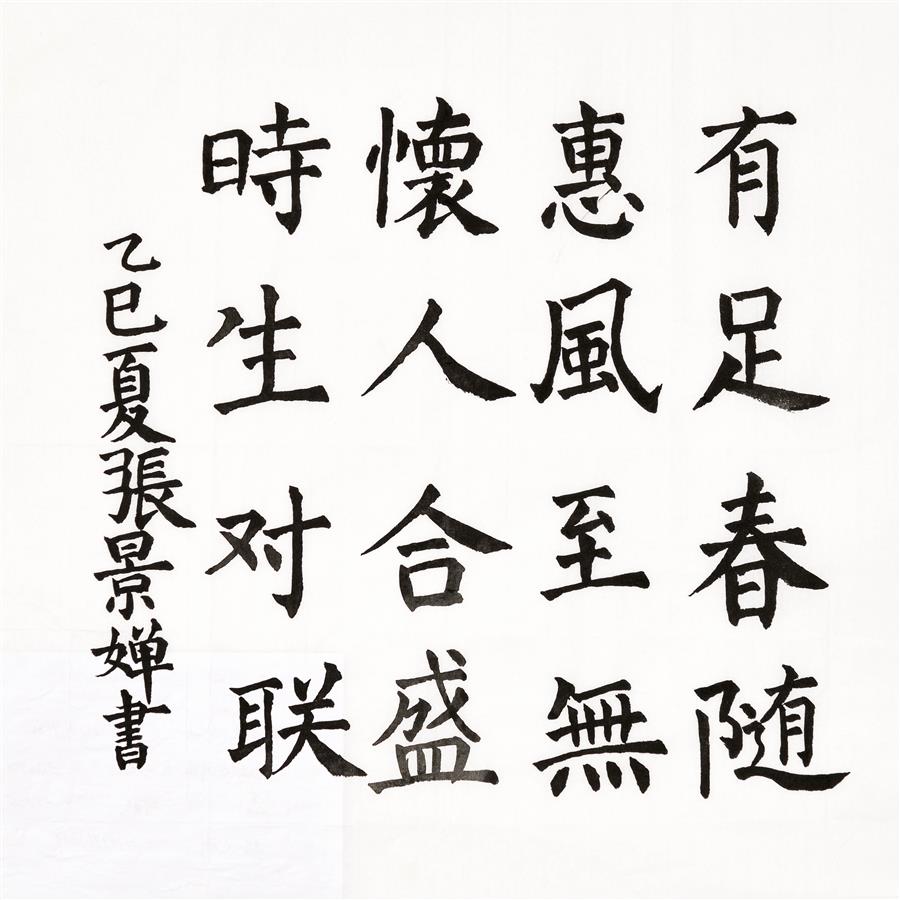 有足春随
惠風至無
懷人合盛
時生对联
乙巳夏張景嬋書